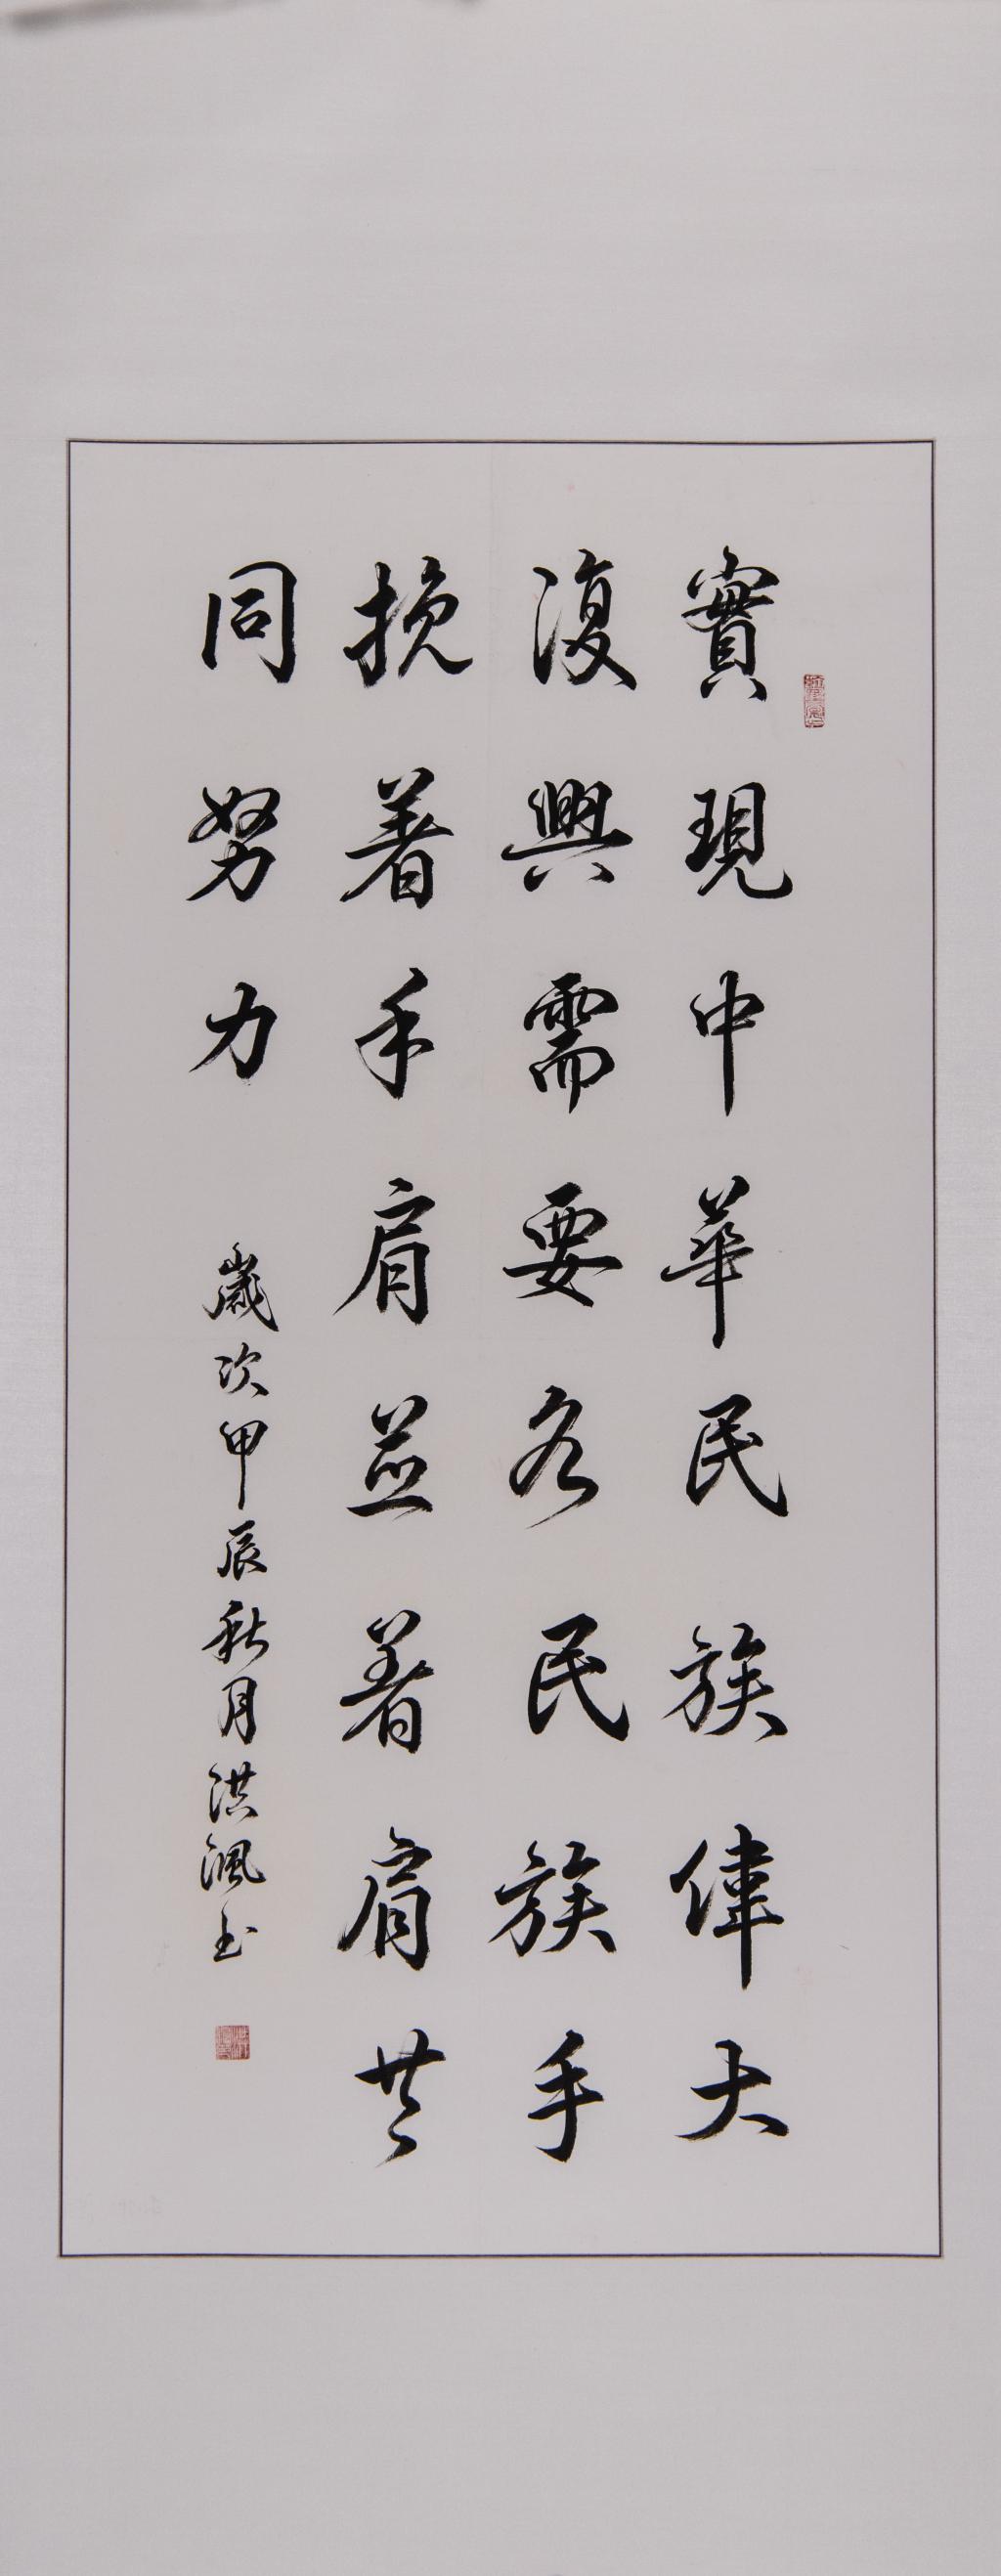 實現中華民族偉大
復興需要各民族手
挽著手肩並著肩共
同努力
歲次甲辰秋月洪飄書